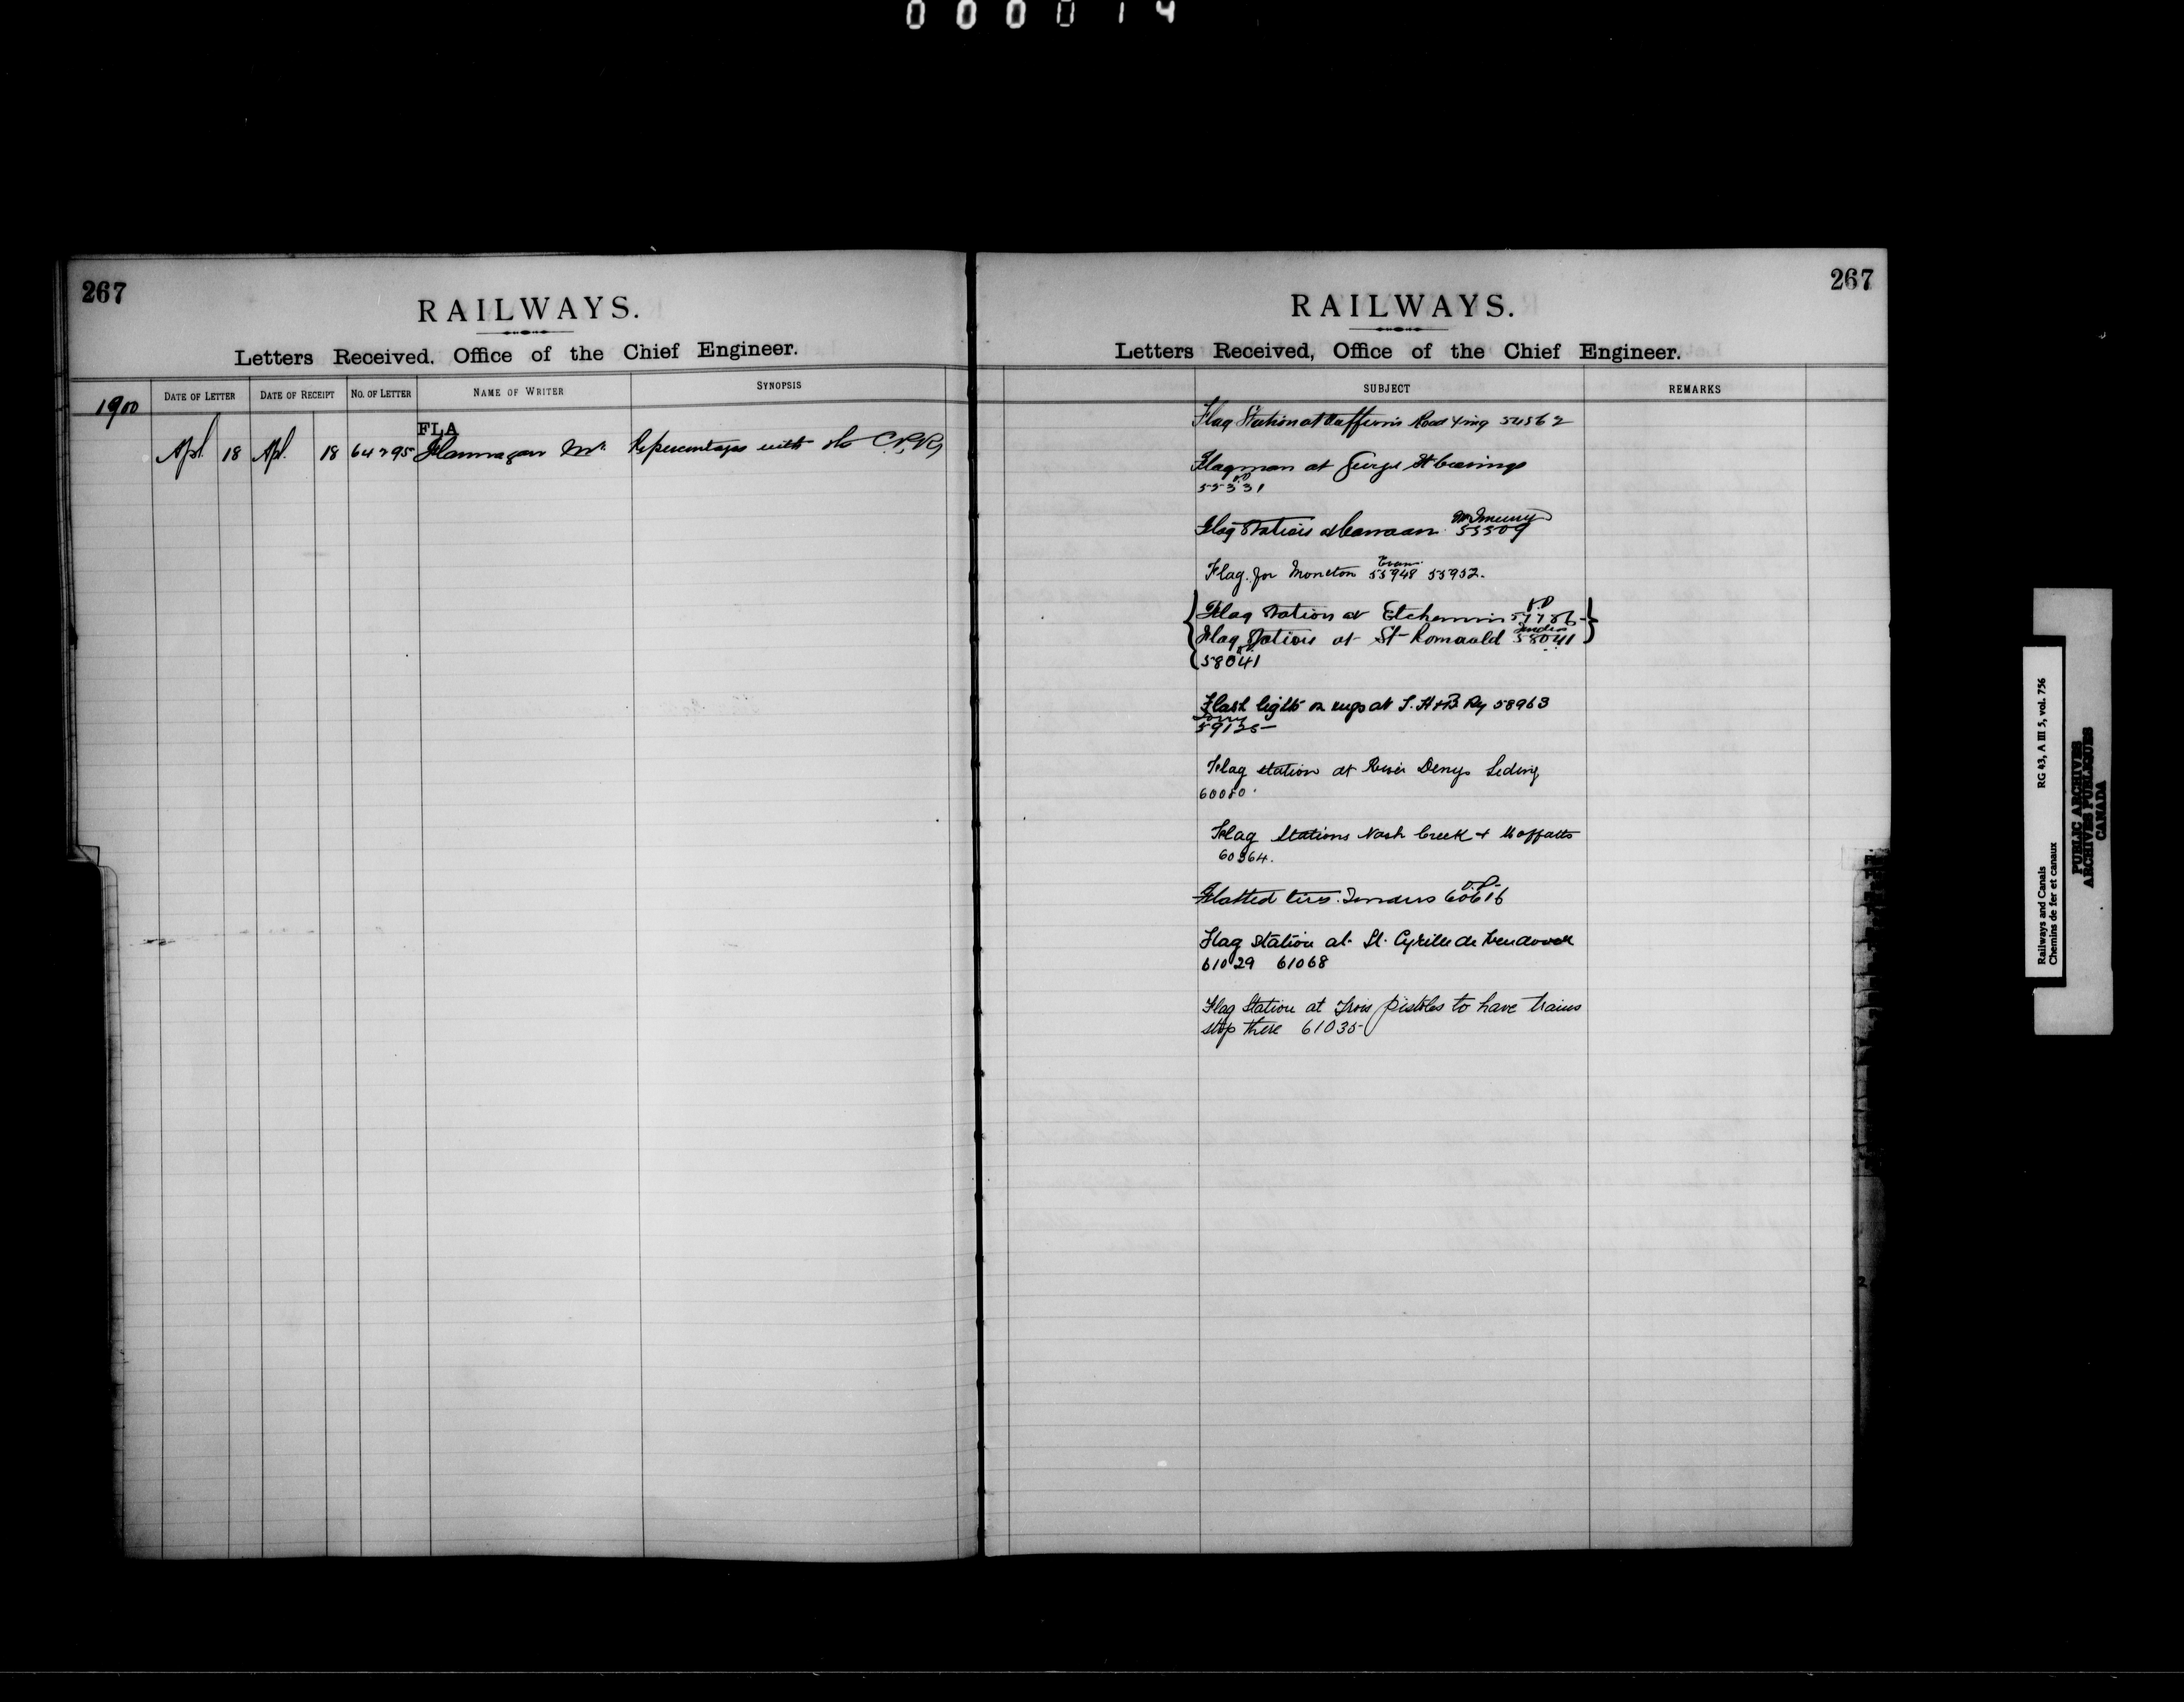 000014
267
RAILWAYS.
Letters Received, Office of the Chief Engineer.
1900
DATE OF LETTER
DATE OF RECEIPT
NO. OF LETTER
NAME OF WRITER
SYNOPSIS
FLA
Apl 18 Apl. 18 64295 Flannagan Mr. Re percentages with the C.P.R,
267
RAILWAYS.
Letters Received, Office of the Chief Engineer.
SUBJECT
REMARKS
Flag Station at Dufferin Road Xing 54562
Flagman at George St Crossings
55331
Flag Station at Canaan. 55509
Flag. for Moncton 55948 55952.
Flag Station at Etchemin
Flag Station at St-Romuald 58041
58041
Flash light on at T. H & B. Ry 58963
59125
Flag station at River Denys Siding
60080
Flag Stations Nash Creek & Moffatts
60364.
Tenders 60616
Flag Station at St. Cyrille de Wendover
61029 61068
Flag Station at Trois Pistoles to have trains
stop there 61035
Railways and Canals RG 43, A III 5, vol. 756
Chemins de fer et canaux
PUBLIC ARCHIVES
ARCHIVES PUBLIQUES
CANADA